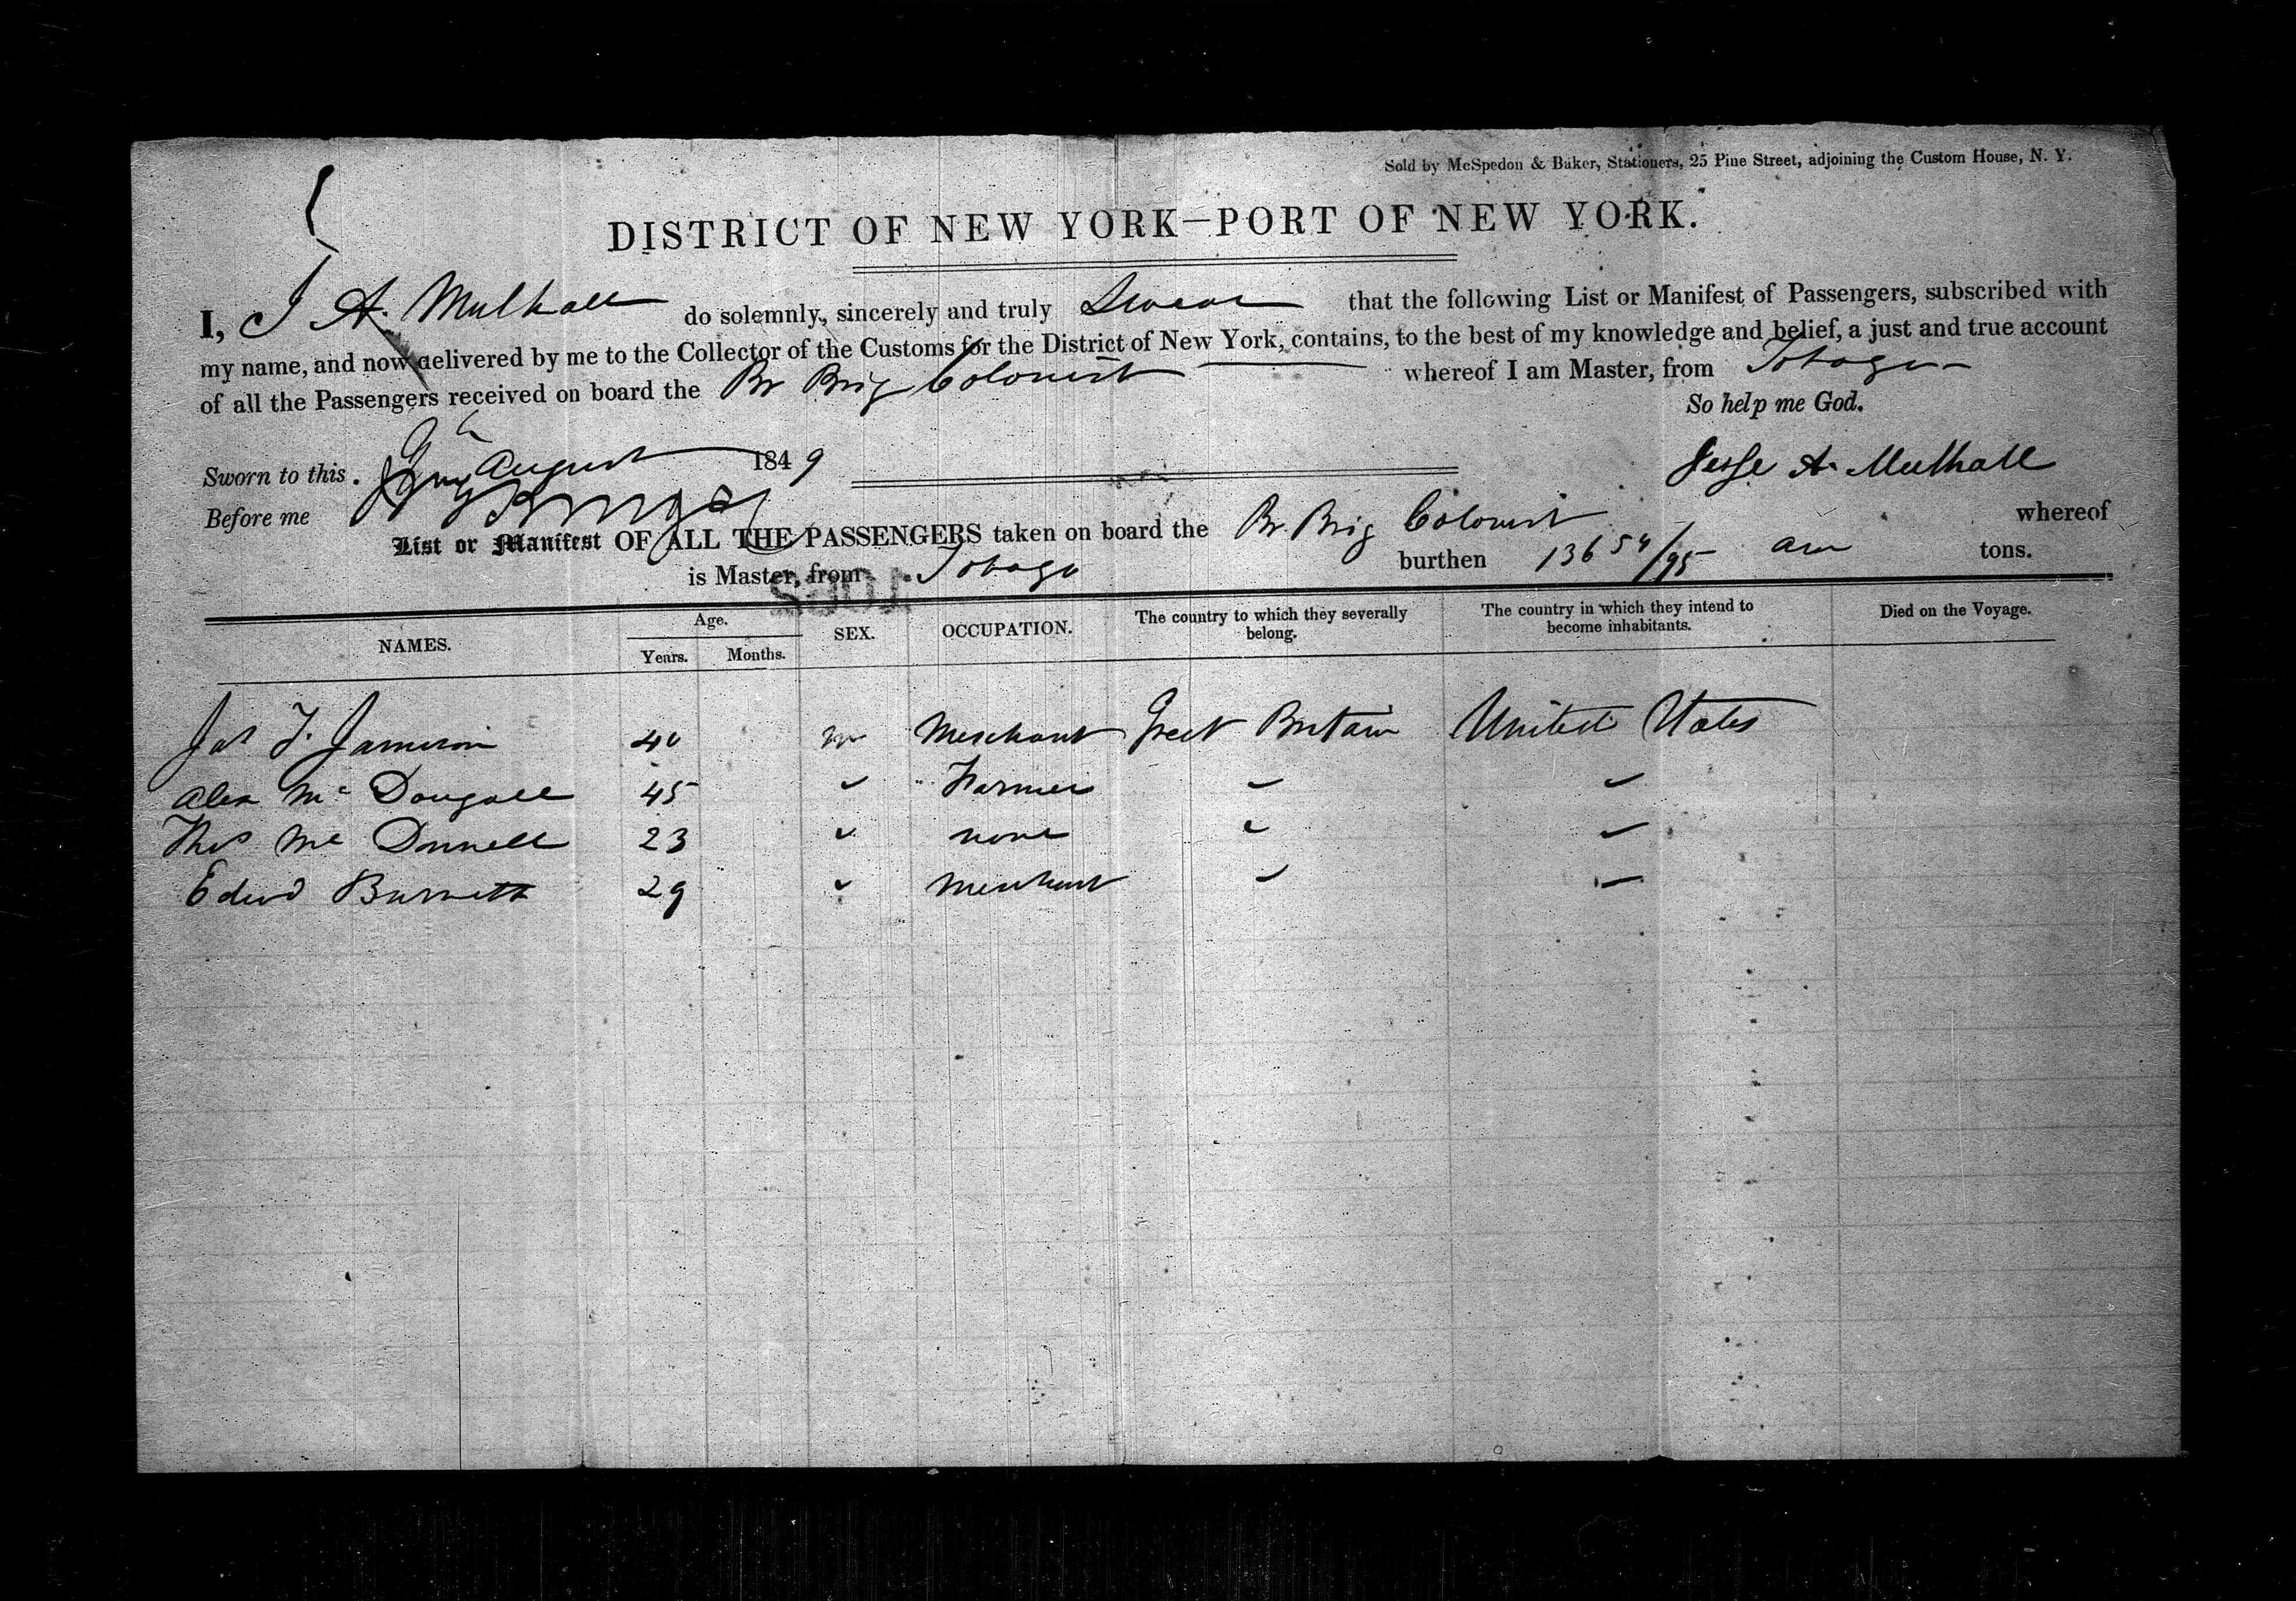 Sold by McSpedon & Baker, Stationers, 25 Pine Street, adjoining the Custom House, N. Y.
DISTRICT OF NEW YORK—PORT OF NEW YORK.
I, J A. Mulhall do solemnly, sincerely and truly Swear that the following List or Manifest of Passengers, subscribed with
my name, and now delivered by me to the Collector of the Customs for the District of New York, contains, to the best of my knowledge and belief, a just and true account
of all the Passengers received on board the Br Brig Colonist whereof I am Master, from Tobago
So help me God.
Sworn to this August 1849
Jesse A. Mulhall
Before me
List or Manifest OF ALL THE PASSENGERS taken on board the Br. Brig Colonist whereof
is Master, from Tobago burthen 136 54/95 tons.
NAMES. Age. Years. Months. SEX. OCCUPATION. The country to which they severally belong. The country in which they intend to become inhabitants. Died on the Voyage.
Jas T. Jamieson 40 m Merchant Great Britain United States
Alex Mc Dougall 45 Farmer
Thos Mc Donnell 23 none
Edwd Burnett 29 Merchant